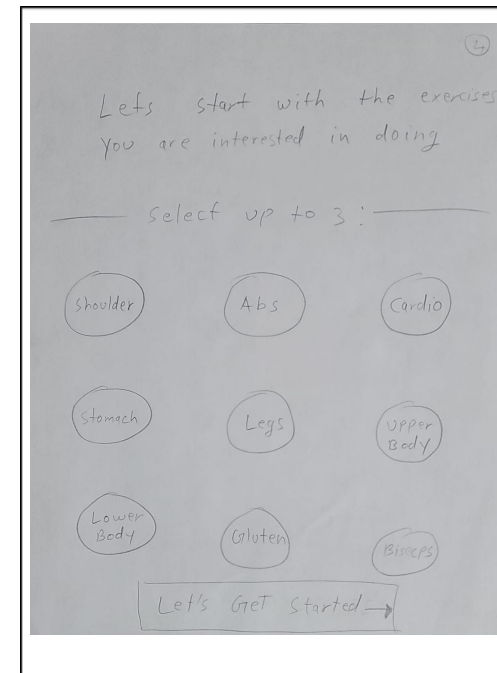 4
Lets start with the exercises
You are interested in doing
Select up to 3:
Shoulder Abs Cardio
Stomach Legs Upper Body
Lower Body Gluten Biseps
Let's GeT Started →